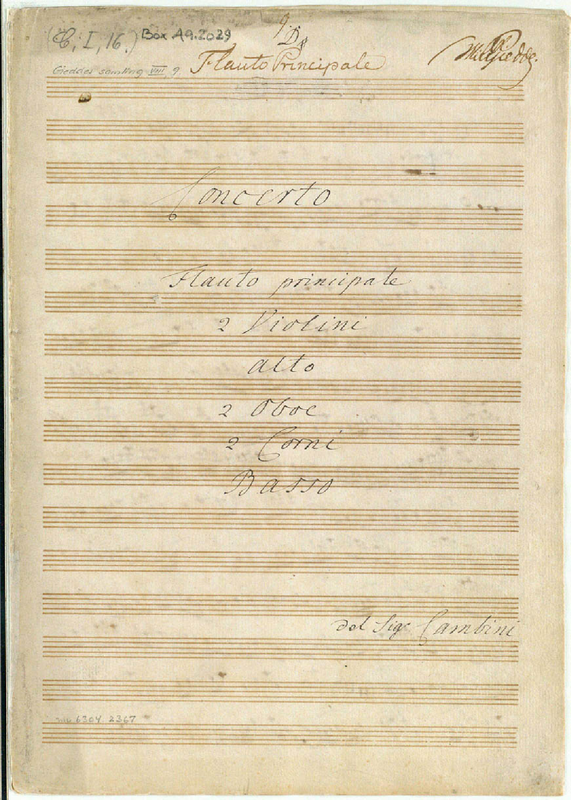 (C, I, 16.) Box A9.2029
Flauto Principale
Giedde's samling VIII, 9
Concerto
Flauto principale
2 Violini
Alto
2 Oboe
2 Corni
Basso
del Sigr Cambini
6304 2367